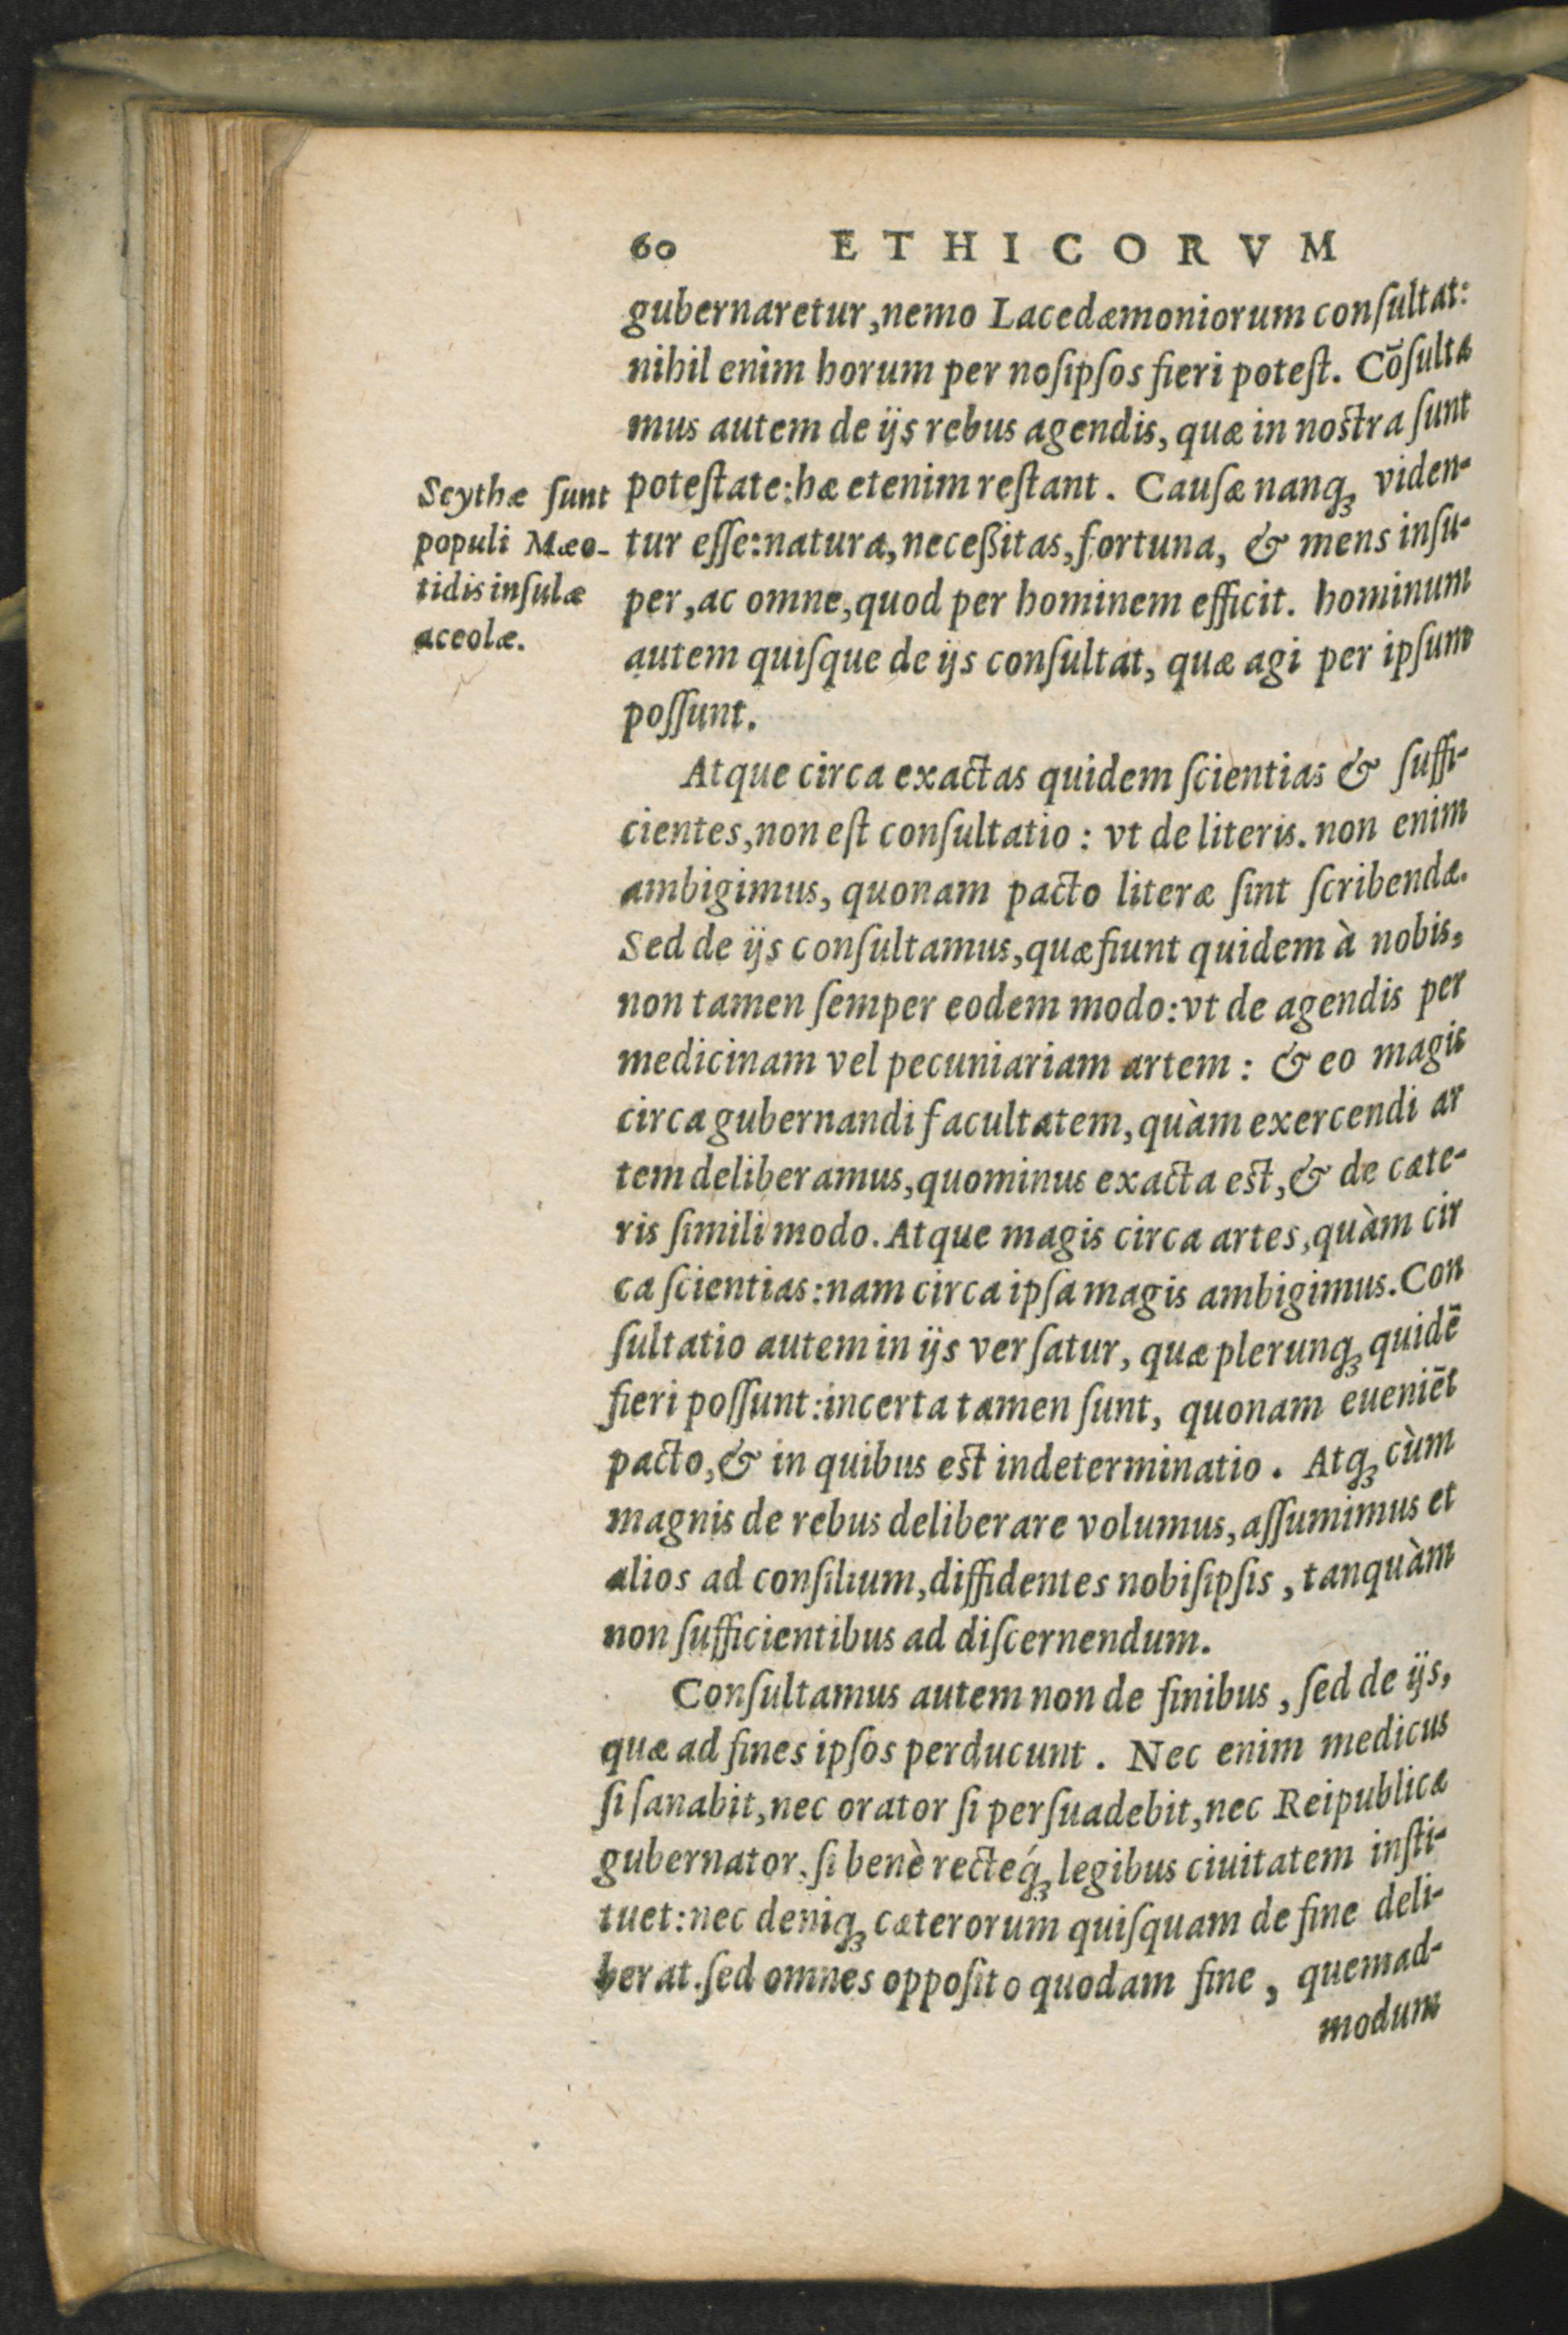 60 ETHICORVM
gubernaretur, nemo Lacedæmoniorum conſultat:
nihil enim horum per noſipſos fieri poteſt. Cõſulta
mus autem de ijs rebus agendis, quæ in noſtra ſunt
poteſtate: hæ etenim reſtant. Cauſæ nanq; viden-
tur eſſe: natura, neceßitas, fortuna, & mens inſu-
per, ac omne, quod per hominem efficit. hominum
autem quiſque de ijs conſultat, quæ agi per ipſum
poſſunt.
Scythæ ſunt
populi Mæo-
tidis inſulæ
aceolæ.
Atque circa exactas quidem ſcientias & ſuffi-
cientes, non eſt conſultatio: vt de literis. non enim
ambigimus, quonam pacto literæ ſint ſcribendæ.
Sed de ijs conſultamus, quæ fiunt quidem à nobis,
non tamen ſemper eodem modo: vt de agendis per
medicinam vel pecuniariam artem: & eo magis
circa gubernandi facultatem, quàm exercendi ar
tem deliberamus, quominus exacta eſt, & de cæte-
ris ſimili modo. Atque magis circa artes, quàm cir
ca ſcientias: nam circa ipſa magis ambigimus. Con
ſultatio autem in ijs verſatur, quæ plerunq; quidẽ
fieri poſſunt: incerta tamen ſunt, quonam eueniẽt
pacto, & in quibus eſt indeterminatio. Atq; cùm
magnis de rebus deliberare volumus, aſſumimus et
alios ad conſilium, diffidentes nobiſipſis, tanquàm
non ſufficientibus ad diſcernendum.
Conſultamus autem non de finibus, ſed de ijs,
quæ ad fines ipſos perducunt. Nec enim medicus
ſi ſanabit, nec orator ſi perſuadebit, nec Reipublicæ
gubernator, ſi benè recteq́; legibus ciuitatem inſti-
tuet: nec deniq; cæterorum quiſquam de fine deli-
berat. ſed omnes oppoſito quodam fine, quemad-
modum